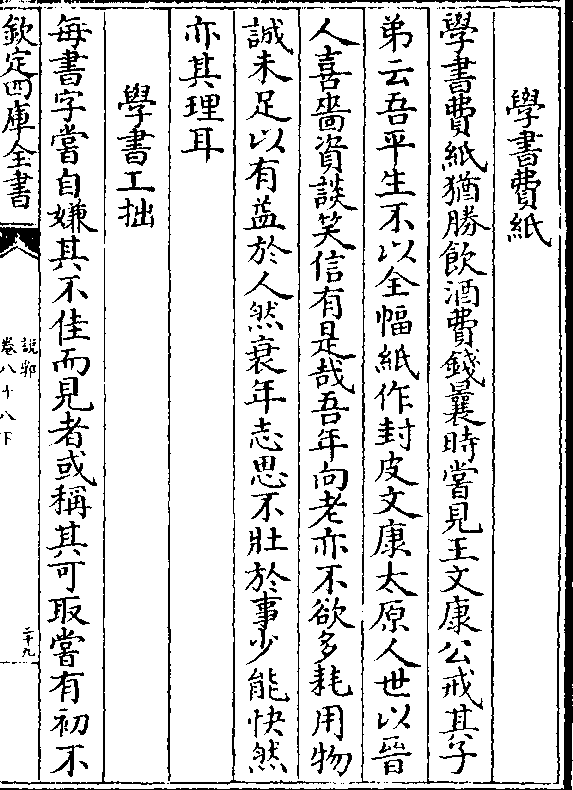 學書費紙
學書費紙猶勝飲酒費錢曩時嘗見王文康公戒其子
弟云吾平生不以全幅紙作封皮文康太原人世以晉
人喜嗇資談笑信有是哉吾年向老亦不欲多耗用物
誠未足以有益於人然衰年志思不壯於事少能快然
亦其理耳
學書工拙
每書字嘗自嫌其不佳而見者或稱其可取嘗有初不
欽定四庫全書
說郛
卷八十八下
二十九